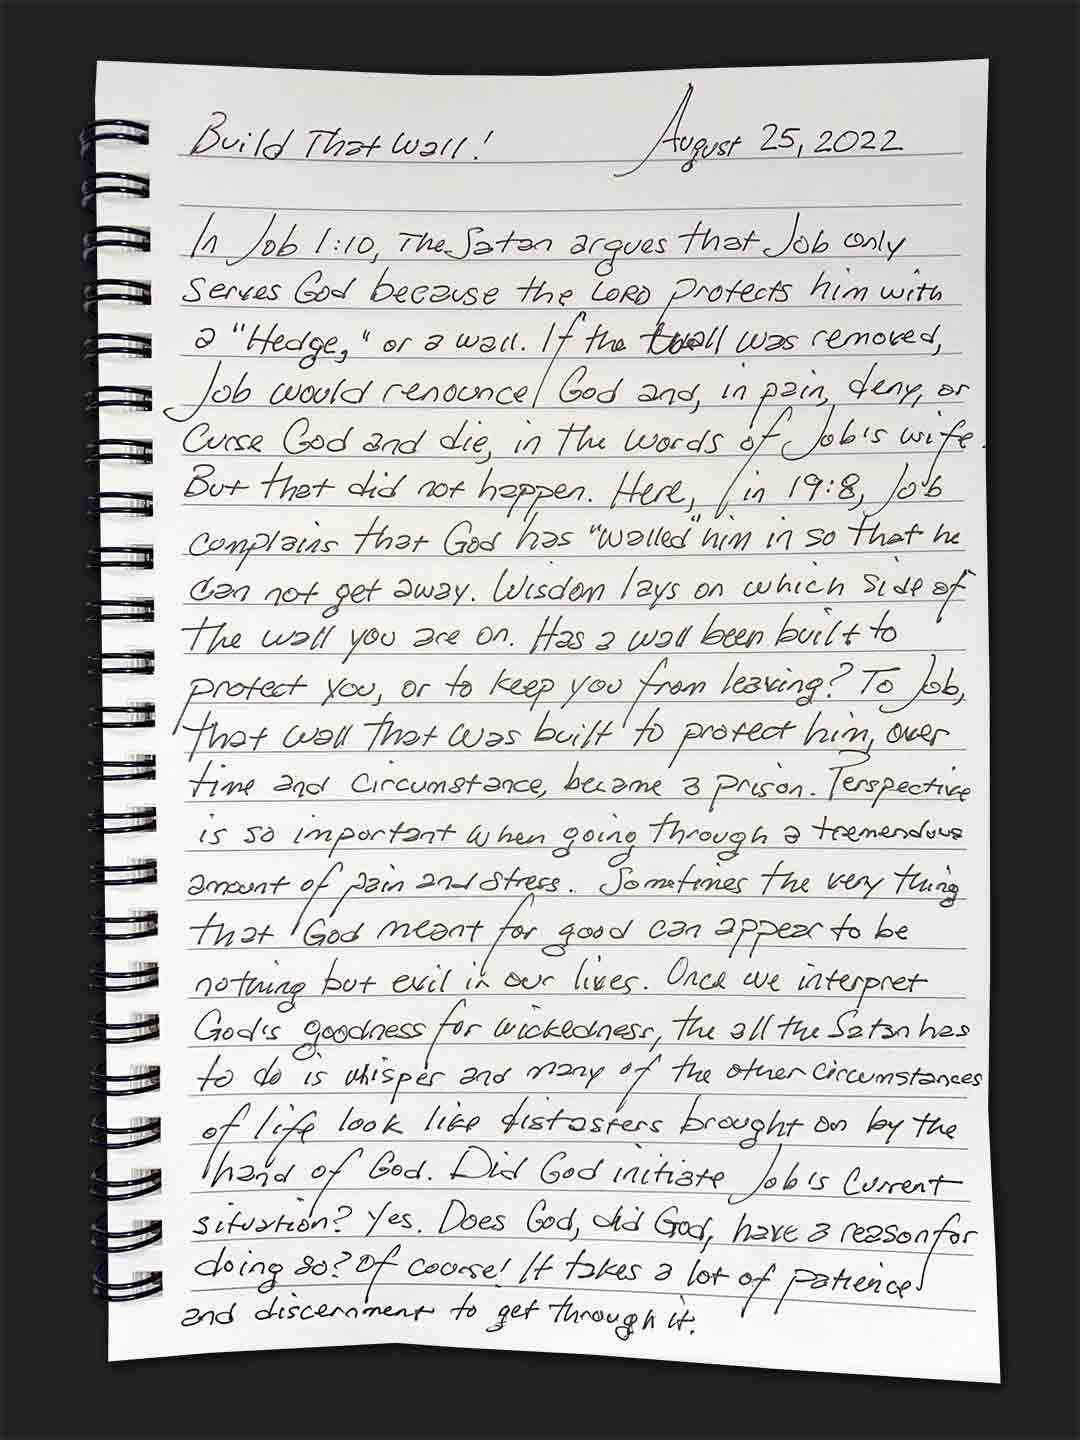 Build That Wall! August 25, 2022
In Job 1:10, The Satan argues that Job only
serves God because the LORD protects him with
a "Hedge," or a wall. If the wall was removed,
Job would renounce God and, in pain, deny, or
curse God and die, in the words of Job's wife.
But that did not happen. Here, in 19:8, Job
complains that God has "walled" him in so that he
can not get away. Wisdom lays on which side of
the wall you are on. Has a wall been built to
protect you, or to keep you from leaving? To Job,
that wall that was built to protect him, over
time and circumstance, became a prison. Perspective
is so important when going through a tremendous
amount of pain and stress. Sometimes the very thing
that God meant for good can appear to be
nothing but evil in our lives. Once we interpret
God's goodness for wickedness, the all the Satan has
to do is whisper and many of the other circumstances
of life look like distasters brought on by the
hand of God. Did God initiate Job's current
situation? Yes. Does God, did God, have a reason for
doing so? Of course! It takes a lot of patience
and discernment to get through it.